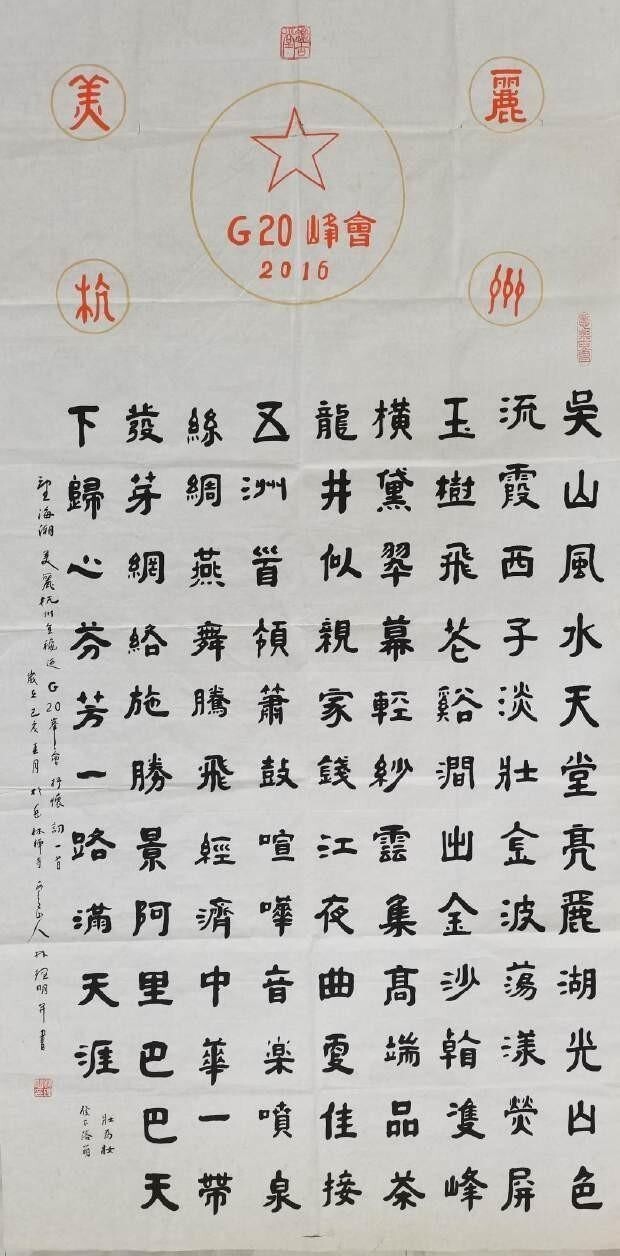 美麗
G20峰會
2016
杭州
吳山風水天堂亮麗湖光山色
流霞西子淡壯宜波蕩漾熒屏
玉樹飛花谿澗出金沙翰峰
橫黛翠幕輕紗雲集高端品茶
龍井似親家錢江夜曲更佳接
五洲首領簫鼓喧嘩音楽噴泉
絲綢燕舞騰飛經濟中華一帶
發芽網絡施勝景阿里巴巴天
下歸心芬芳一路滿天涯
望海潮 美麗杭州喜迎G20峯會抒懷詞一首
歲在己亥正月於林禪寺山人林明并書
壯為妝